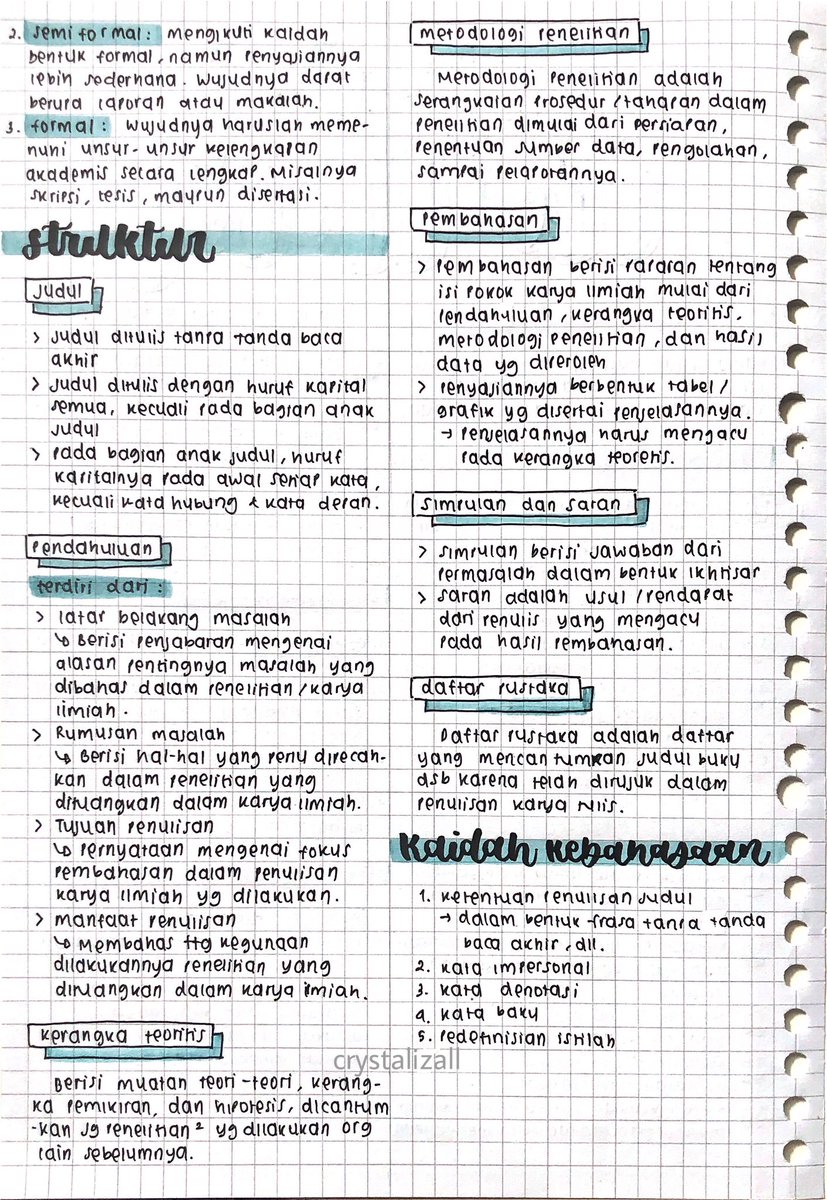 2. semi formal: mengikuti kaidah
bentuk formal, namun penyajiannya
lebih sederhana. Wujudnya dapat
berupa laporan atau makalah.
3. formal: Wujudnya haruslah meme-
nuhi unsur-unsur kelengkapan
akademis secara lengkap. Misalnya
skripsi, tesis, maupun disertasi.
struktur
judul
> Judul ditulis tanpa tanda baca
akhir
> Judul ditulis dengan huruf kapital
semua, kecuali pada bagian anak
judul
> pada bagian anak judul, huruf
kapitalnya pada awal setiap kata,
kecuali kata hubung & kata depan.
pendahuluan
terdiri dari:
> latar belakang masalah
↳ Berisi penjabaran mengenai
alasan pentingnya masalah yang
dibahas dalam penelitian/karya
ilmiah.
> Rumusan masalah
↳ Berisi hal-hal yang perlu dipecah-
kan dalam penelitian yang
dituangkan dalam karya ilmiah.
> Tujuan penulisan
↳ pernyataan mengenai fokus
pembahasan dalam penulisan
karya ilmiah yg dilakukan.
> manfaat penulisan
↳ Membahas ttg kegunaan
dilakukannya penelitian yang
dituangkan dalam karya ilmiah.
kerangka teoritis
Berisi muatan teori-teori, kerang-
ka pemikiran, dan hipotesis, dicantum
-kan jg penelitian² yg dilakukan org
lain sebelumnya.
metodologi penelitian
Metodologi penelitian adalah
serangkaian prosedur/tahapan dalam
penelitian dimulai dari persiapan,
penentuan sumber data, pengolahan,
sampai pelaporannya.
pembahasan
> pembahasan berisi paparan tentang
isi pokok karya ilmiah mulai dari
pendahuluan, kerangka teoritis.
metodologi penelitian, dan hasil
data yg diperoleh
> penyajiannya berbentuk tabel/
grafik yg disertai penjelasannya.
→ penjelasannya harus mengacu
pada kerangka teoretis.
simpulan dan saran
> simpulan berisi jawaban dari
permasalah dalam bentuk ikhtisar
> saran adalah usul/pendapat
dari penulis yang mengacu
pada hasil pembahasan.
daftar pustaka
Daftar pustaka adalah daftar
yang mencantumkan judul buku
dsb karena telah dirujuk dalam
penulisan karya tulis.
kaidah kebahasaan
1. ketentuan penulisan judul
→ dalam bentuk frasa tanpa tanda
baca akhir, dll.
2. kata impersonal
3. kata denotasi
4. kata baku
5. pedefinisian istilah
crystalizall